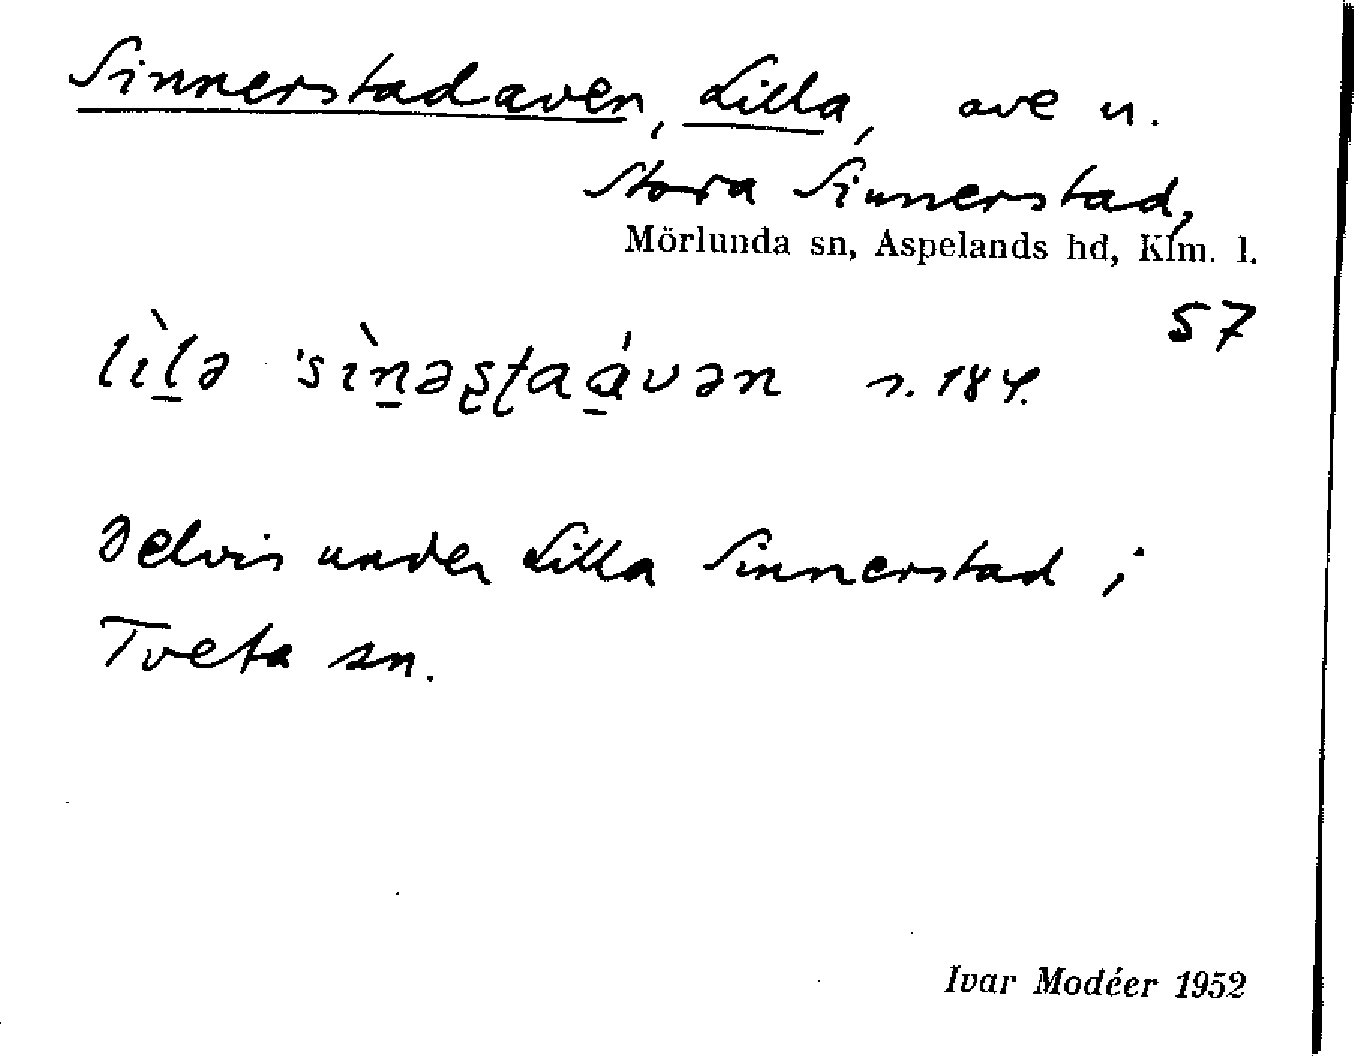 Sinnerstadaven, Lilla, ave u.
Stora Sinnerstad,
Mörlunda sn, Aspelands hd, Klm. l.
57
lìḻə 'sìṉəʂʈaá̱vən s. 184.
Delvis under Lilla Sinnerstad i
Tveta sn.
Ivar Modéer 1952